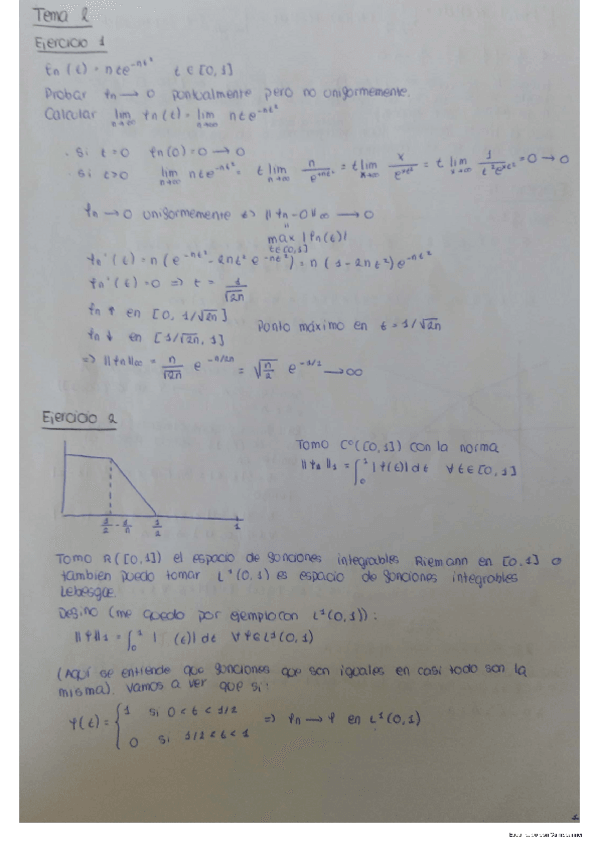 Tema 2
Ejercicio 1
fn(t) = nte^{-nt²} t ∈ [0,1]
Probar fn → 0 puntualmente pero no uniformemente.
Calcular lim_{n→∞} fn(t) = lim_{n→∞} nte^{-nt²}
· Si t=0 fn(0)=0 → 0
· Si t>0 lim_{n→∞} nte^{-nt²} = t lim_{n→∞} n/e^{nt²} = t lim_{x→∞} x/e^{xt²} = t lim_{x→∞} 1/(t²e^{xt²}) = 0 → 0
fn → 0 uniformemente ⇔ ||fn-0||∞ → 0
||
max |fn(t)|
t∈[0,1]
fn'(t) = n(e^{-nt²} - 2nt²e^{-nt²}) = n(1-2nt²)e^{-nt²}
fn'(t)=0 ⇒ t = 1/√2n
fn ↑ en [0, 1/√2n]
fn ↓ en [1/√2n, 1]
Punto máximo en t = 1/√2n
⇒ ||fn||∞ = n/√2n e^{-n/2n} = √(n/2) e^{-1/2} → ∞
Ejercicio 2
Tomo C⁰([0,1]) con la norma
||fn||₁ = ∫₀¹ |f(t)|dt ∀t∈[0,1]
1/2 - 1/n 1/2 1
Tomo R([0,1]) el espacio de funciones integrables Riemann en [0,1] o
tambien puedo tomar L¹(0,1) es espacio de funciones integrables
Lebesgue.
Defino (me quedo por ejemplo con L¹(0,1)):
||f||₁ = ∫₀¹ | (t)|dt ∀f∈L¹(0,1)
(Aquí se entiende que funciones que son iguales en casi todo son la
misma). Vamos a ver que si:
f(t) = { 1 si 0<t<1/2
0 si 1/2<t<1 ⇒ fn → f en L¹(0,1)